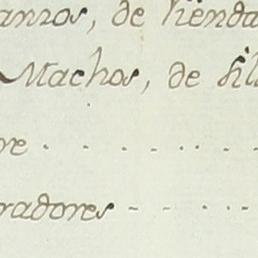 anzos, de tienda
Machos, de sil
re
radores